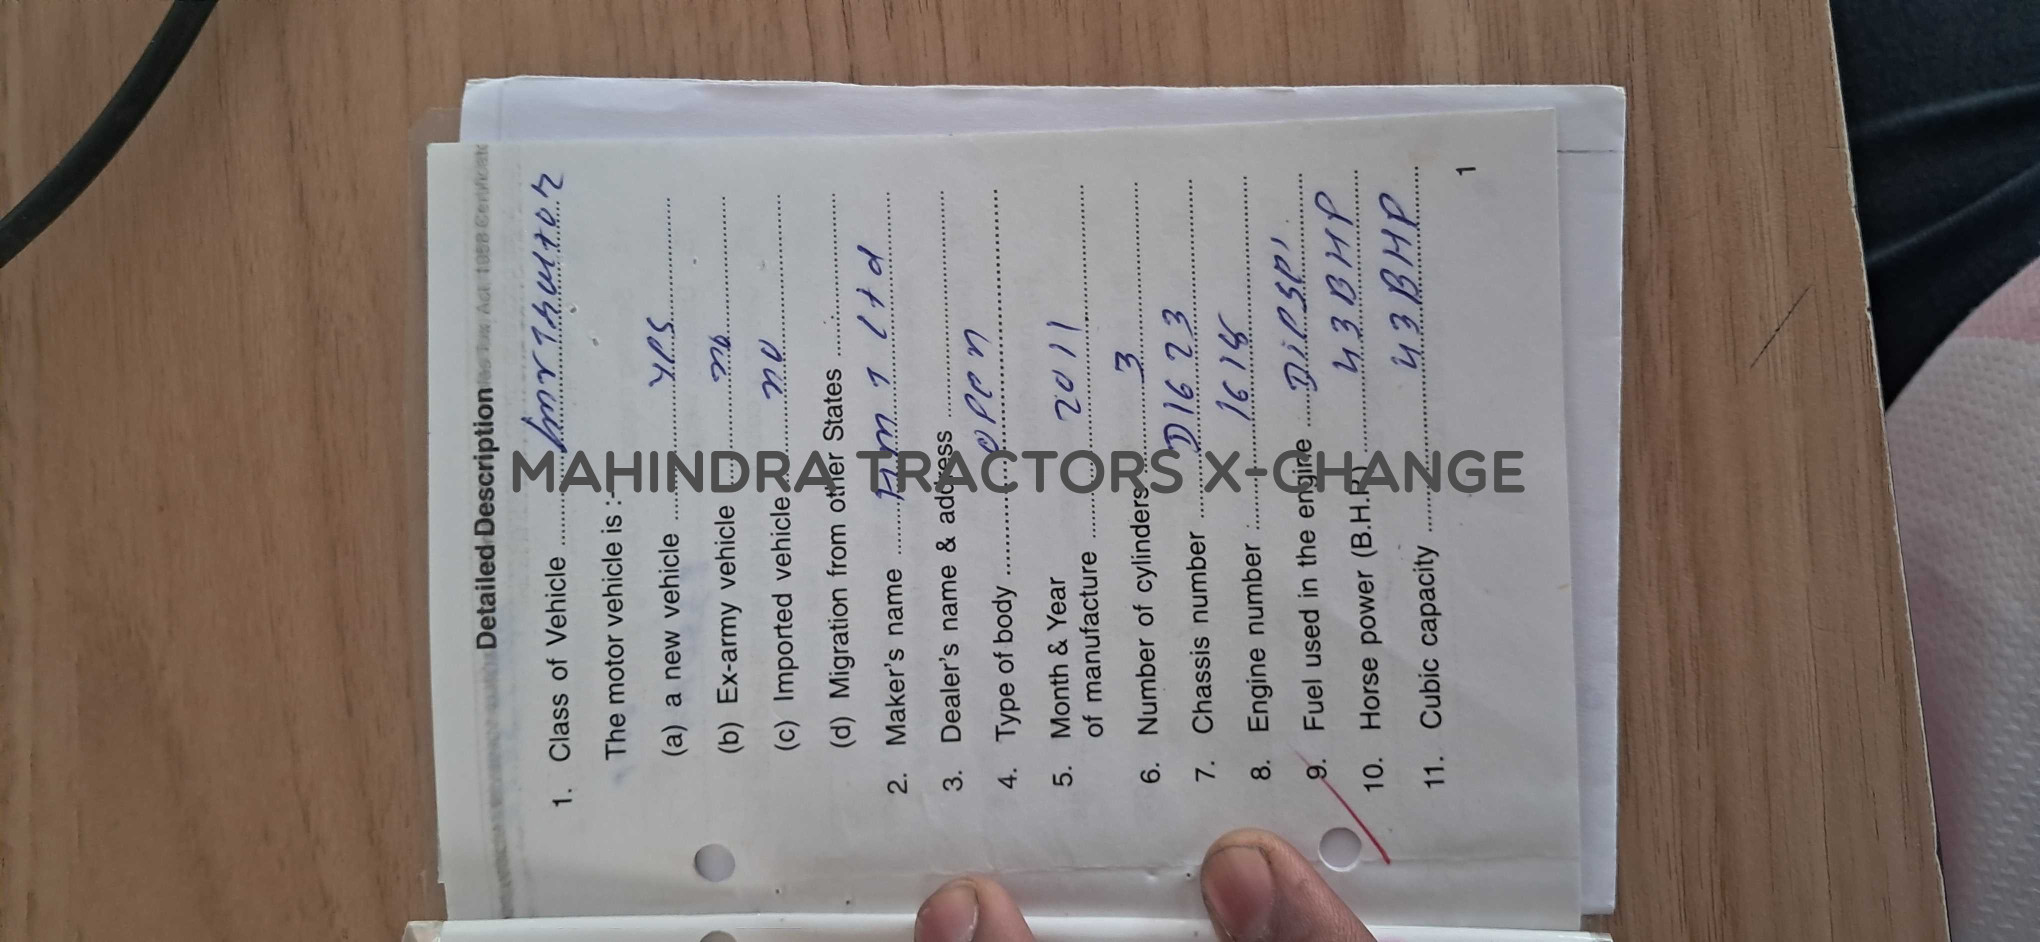 Tax Act 1958 Certificate
Detailed Description
1. Class of Vehicle
The motor vehicle is :-
(a) a new vehicle yes
(b) Ex-army vehicle no
(c) Imported vehicle no
(d) Migration from other States
2. Maker's name HMT Ltd
3. Dealer's name & address
4. Type of body open
5. Month & Year
of manufacture 2011
6. Number of cylinders 3
7. Chassis number D1623
8. Engine number
9. Fuel used in the engine Diesel
10. Horse power (B.H.P.) 43 BHP
11. Cubic capacity 43 BHP
1
MAHINDRA TRACTORS X-CHANGE